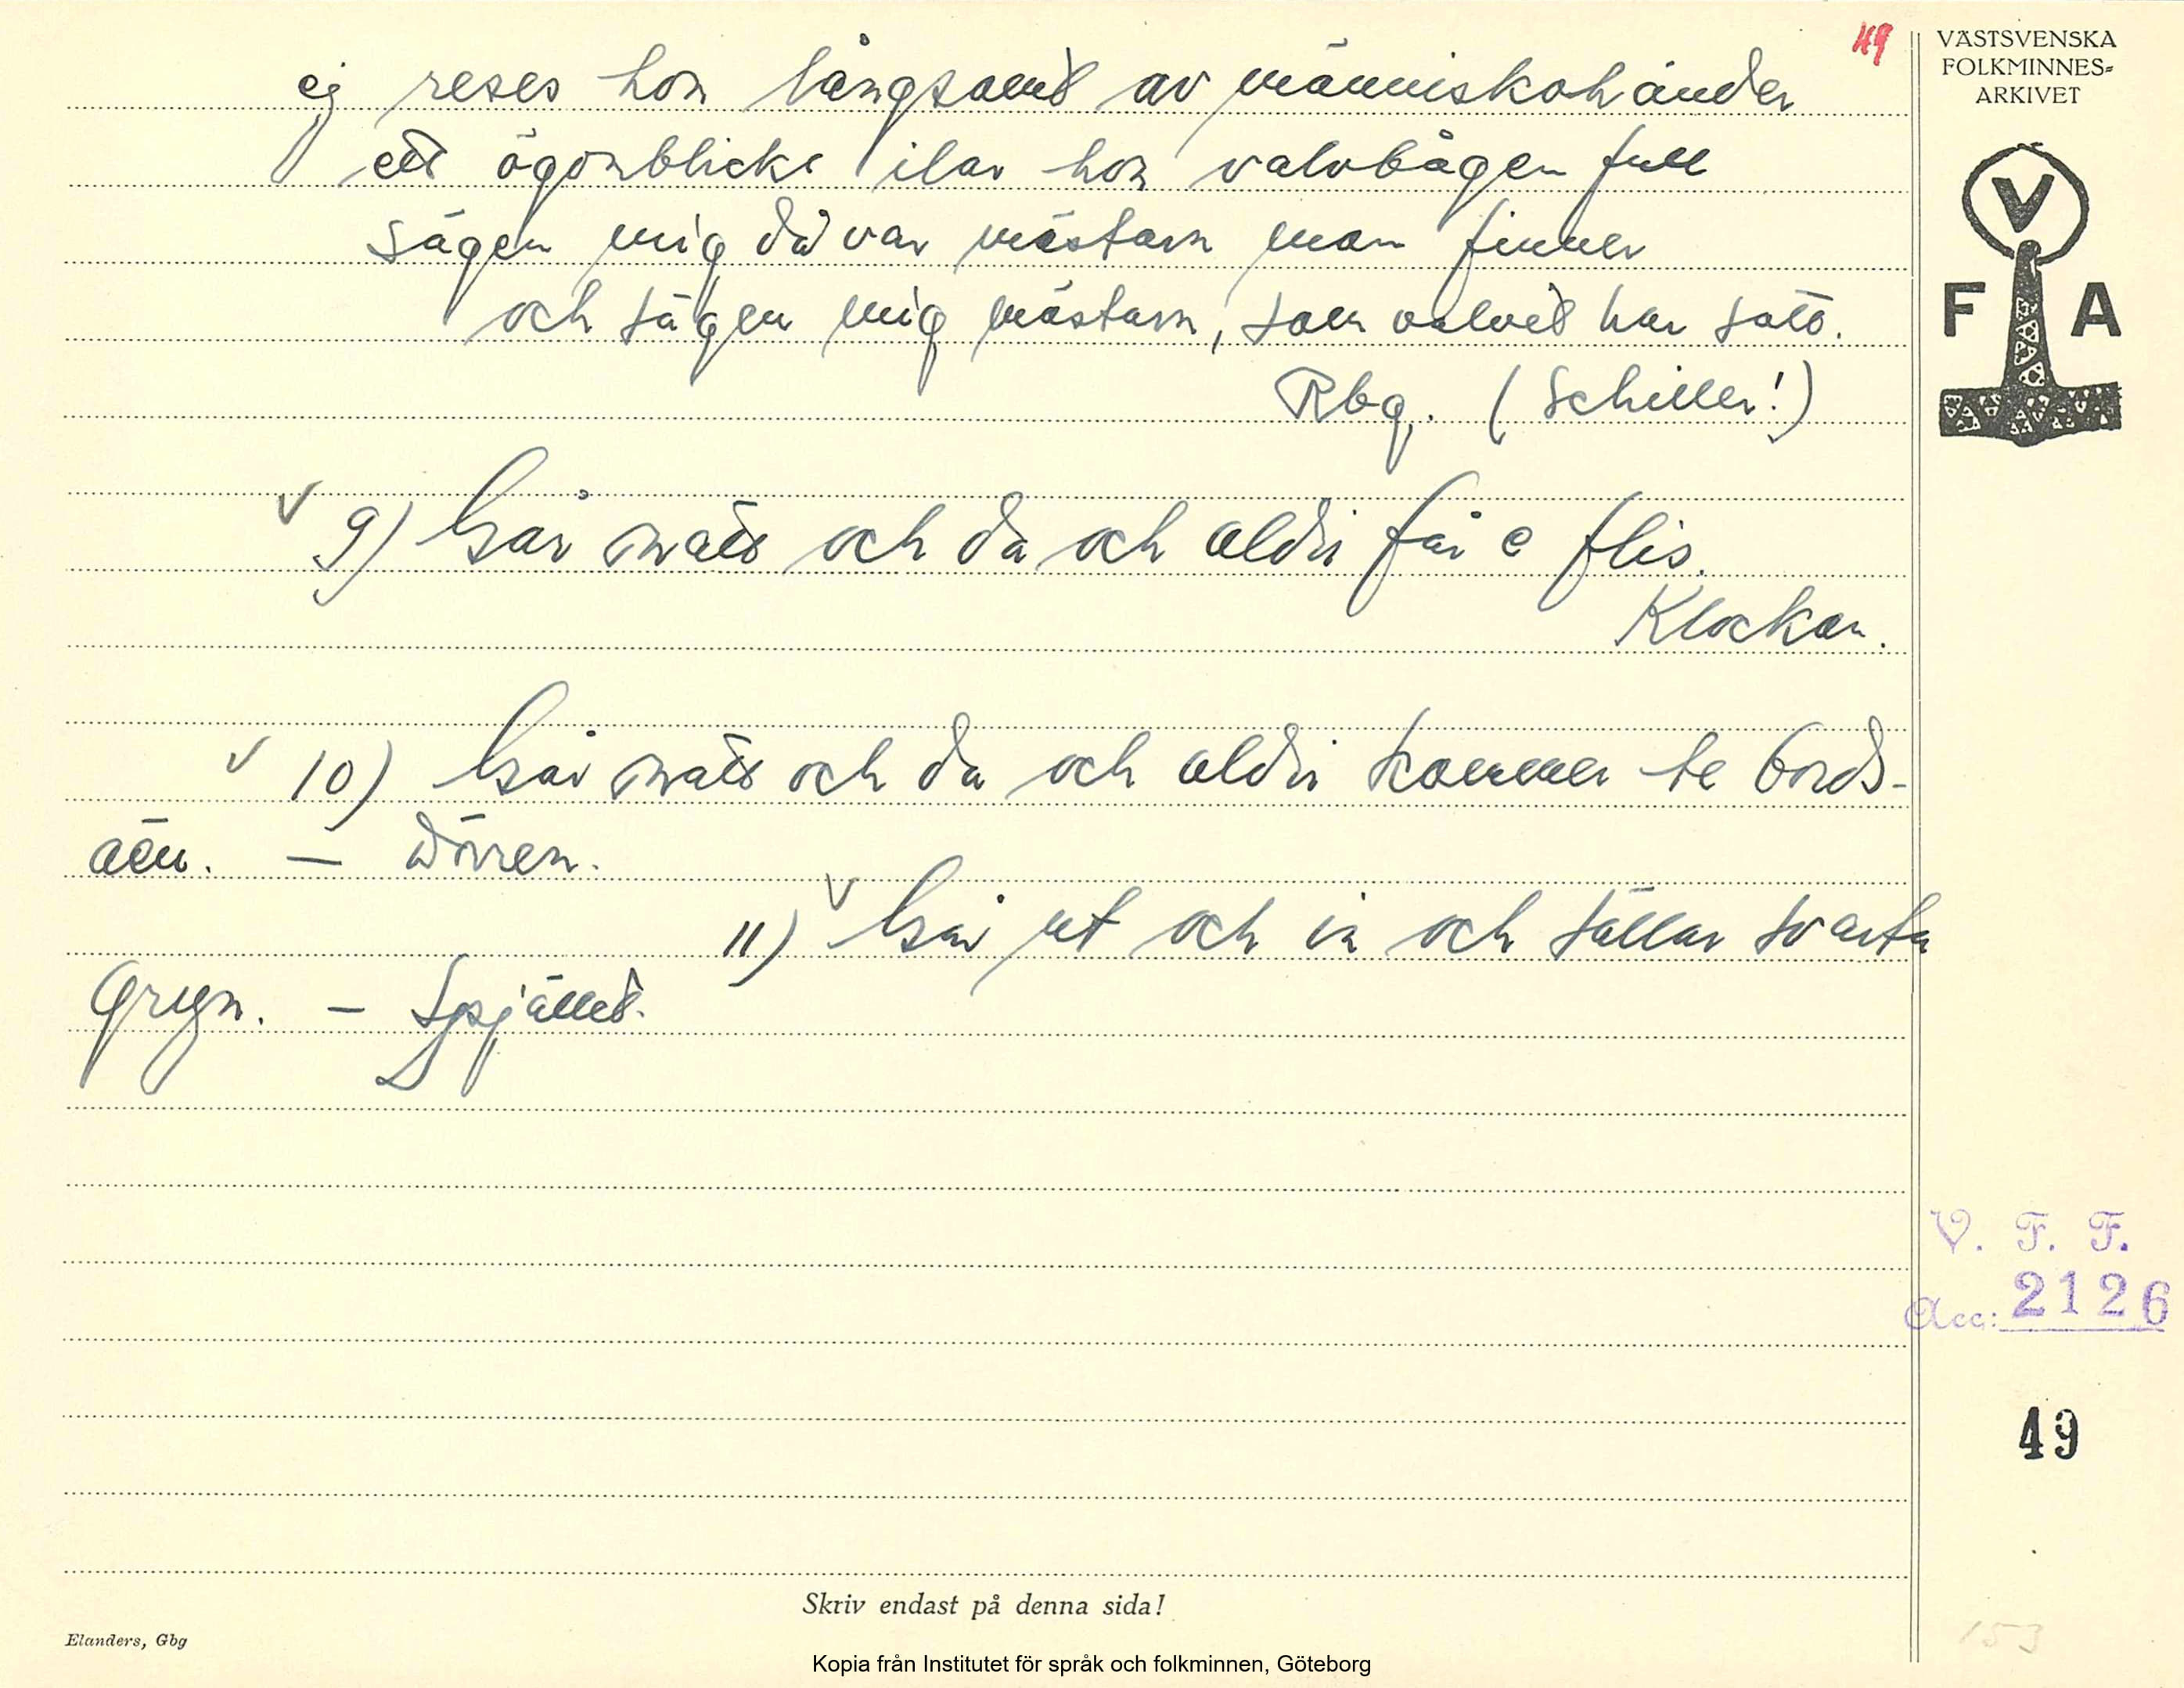 49
VÄSTSVENSKA
FOLKMINNES=
ARKIVET
V
F A
ej reses hon långsamt av människohänder
ett ögonblicks ilar hon valvbågen full
sägen mig då var mästarn man finner
och sägen mig mästarn, som valvet har satt.
Rbg. (Schiller!)
v 9) Går natt och da och aldri får e flis.
Klockan.
v 10) Går natt och da och aldri kommer te bords-
än. – Dörren.
v 11) Går ut och in och sållar svarta
gryn. – Spjället.
V. F. F.
Acc: 2126
49
Skriv endast på denna sida!
Elanders, Gbg
153
Kopia från Institutet för språk och folkminnen, Göteborg